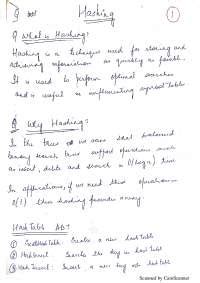 Hashing
1
Q What is Hashing?
Hashing is a technique used for storing and
retrieving information as quickly as possible.
It is used to perform optimal searches
and is useful in implementing symbol tables
Q Why Hashing?
In the trees we seen that balanced
binary search trees support operations such
as insert, delete and search in O(logn) time
In applications, if we need these operations
O(1) then hashing provides a way.
Hash Table ADT
1 CreateHashTable: Creates a new hash table
2 HashSearch: Searches the key in hash table
3 Hash Insert: Insert a new key into hash table
Scanned by CamScanner